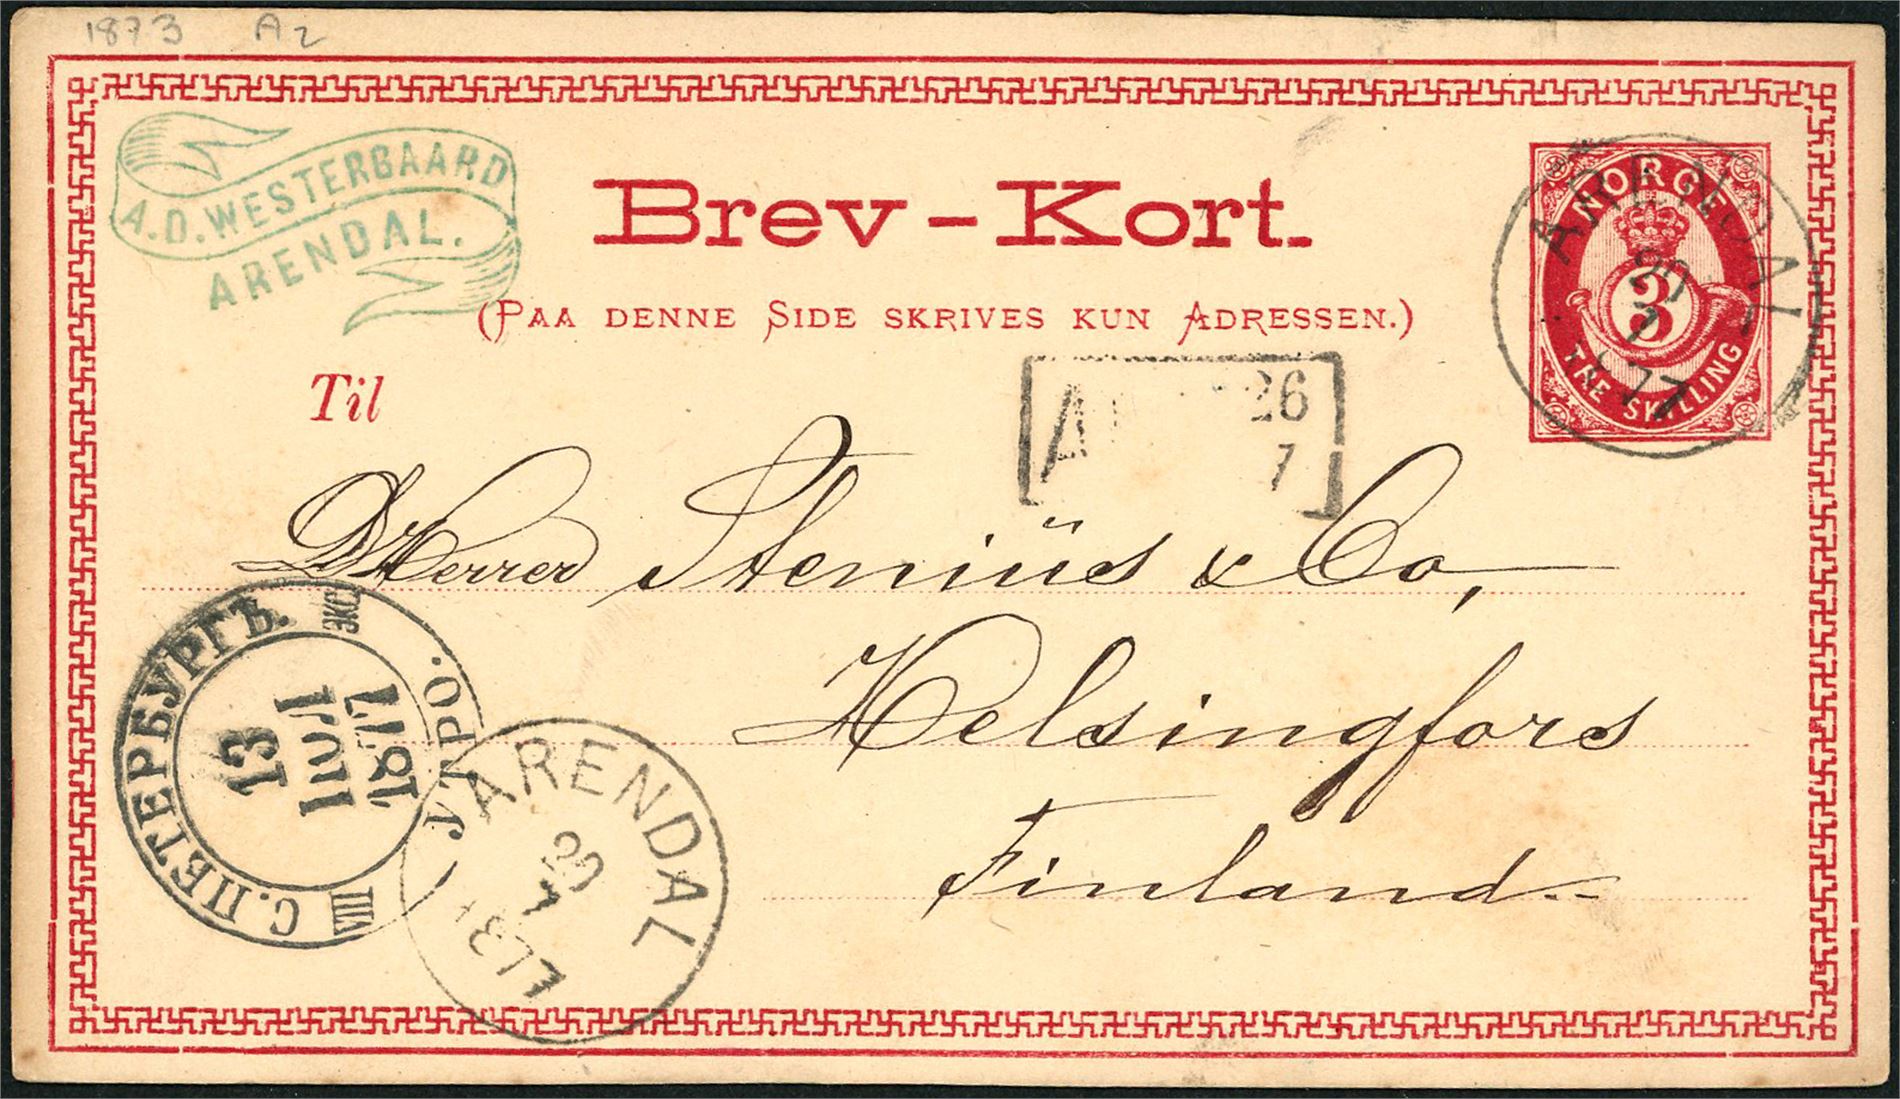 1873 A2
A.D. WESTERGAARD
ARENDAL.
Brev-Kort.
(PAA DENNE SIDE SKRIVES KUN ADRESSEN.)
NORGE
3
TRE SKILLING
ARENDAL
20
7
1877
Til
26
7
D'Herrer Steniüs & Co,
Helsingfors
Finland
С. ПЕТЕРБУРГЪ.
13
ІЮЛ
1877
УТРО.
VIII
ARENDAL
20
7
1877